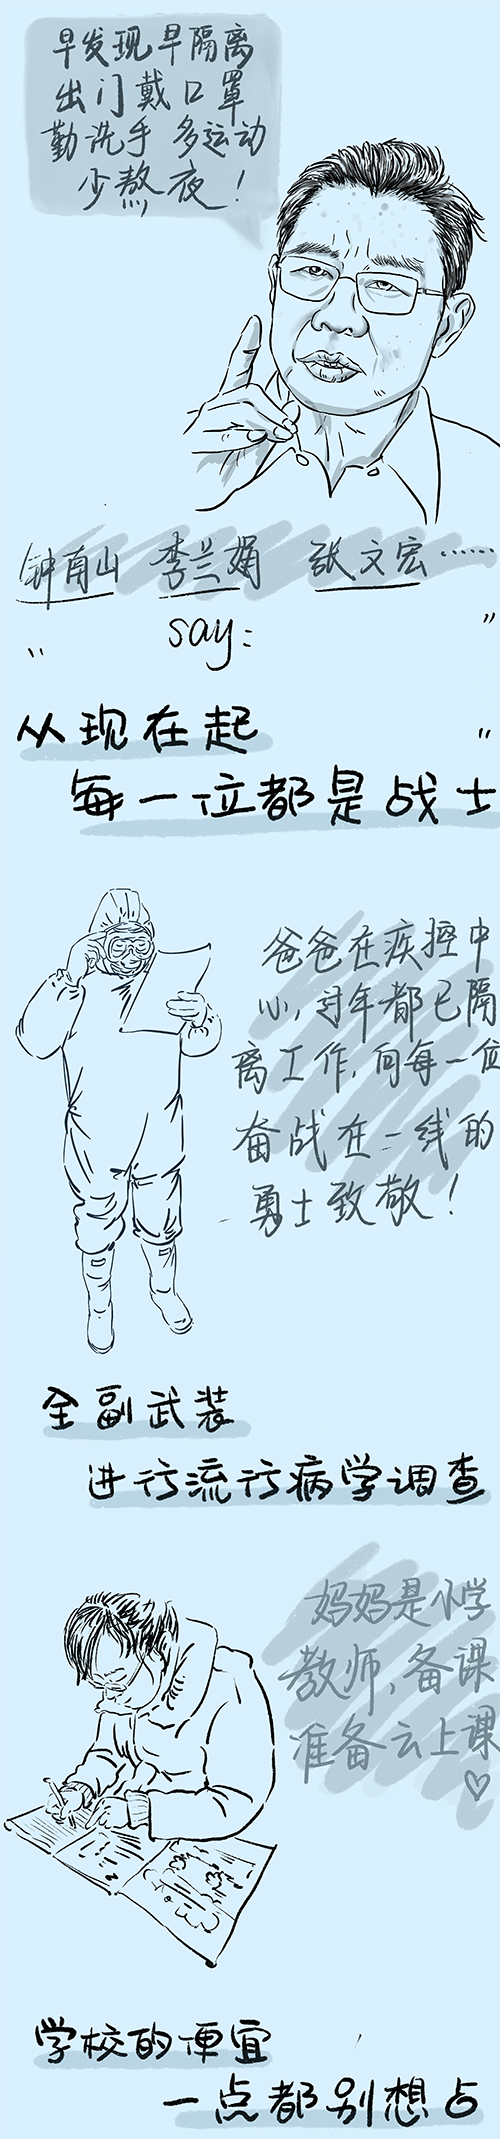 早发现早隔离
出门戴口罩
勤洗手 多运动
少熬夜！
钟南山 李兰娟 张文宏……
say:
从现在起
每一位都是战士
爸爸在疾控中
心，过年都已隔
离工作，向每一位
奋战在一线的
勇士致敬！
全副武装
进行流行病学调查
妈妈是小学
教师，备课
准备云上课
♡
学校的便宜
一点都别想占